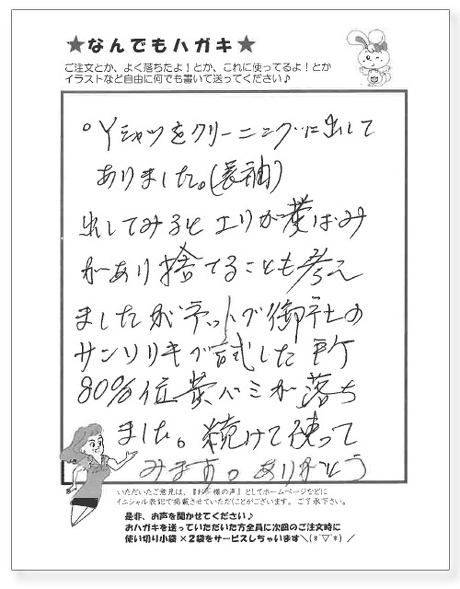 ★なんでもハガキ★
ご注文とか、よく落ちたよ！とか、これに使ってるよ！とか
イラストなど自由に何でも書いて送ってください♪
○Yシャツをクリーニングに出して
ありました。(長袖)
出してみるとエリが黄ばみ
があり捨てることも考え
ましたがネットで御社の
サンソリキで試した所
80%位黄バミが落ち
ました。続けて使って
みます。ありがとう
いただいたご意見は、『お客様の声』としてホームページなどに
イニシャル表記で掲載させていただくことがございます。ご了承下さい。
是非、お声を聞かせてください♪
おハガキを送っていただいた方全員に次回のご注文時に
使い切り小袋×2袋をサービスしちゃいます＼(*ˇ▽ˇ*) ／